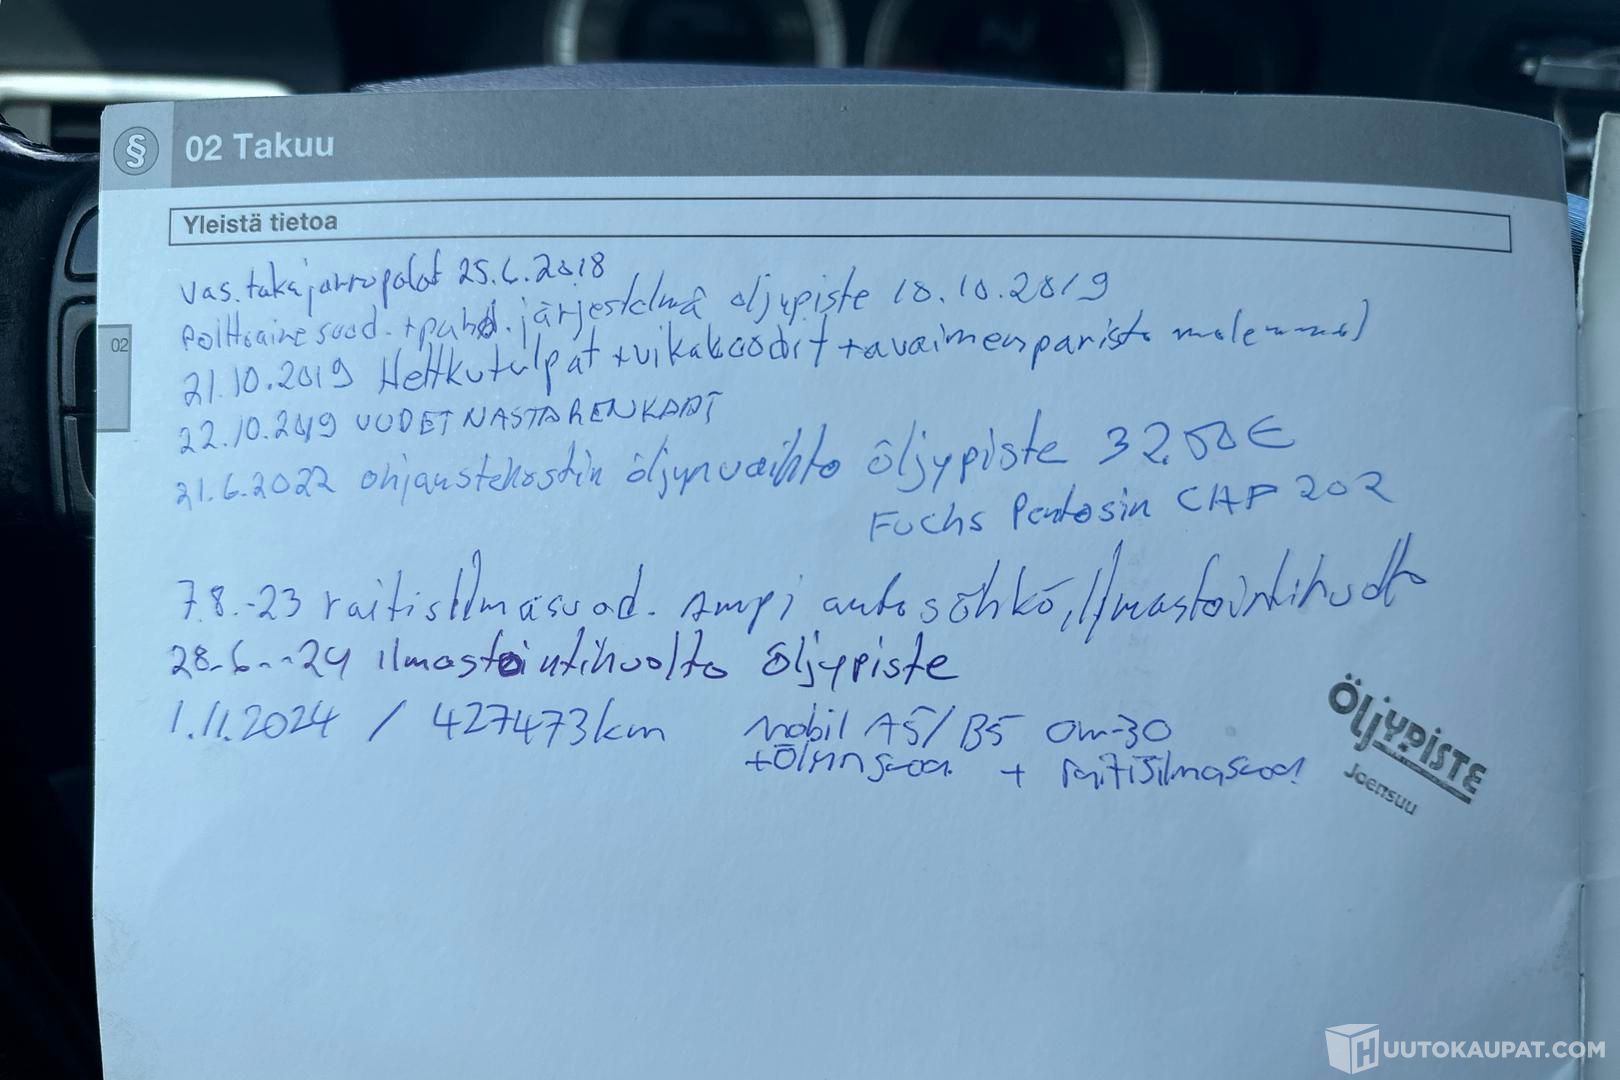 § 02 Takuu
Yleistä tietoa
vas. takajarrupalat 25.6.2018
Polttoainesuod. + puhd. järjestelmä öljypiste 10.10.2019
21.10.2019 Hehkutulpat + vikakoodit + avaimenparisto molemmat
22.10.2019 UUDET NASTARENKAAT
21.6.2022 ohjaustehostin öljynvaihto öljypiste 32,50€
Fuchs Pentosin CHF 202
02
7.8.-23 raitisilmasuod. Ampi autosähkö, Ilmastointihuolto
28.6.-24 ilmastointihuolto öljypiste
1.11.2024 / 427473km Mobil A5/B5 0W-30
+ öljynsuod. + raitisilmasuod
ÖLJYPISTE
Joensuu
HUUTOKAUPAT.COM